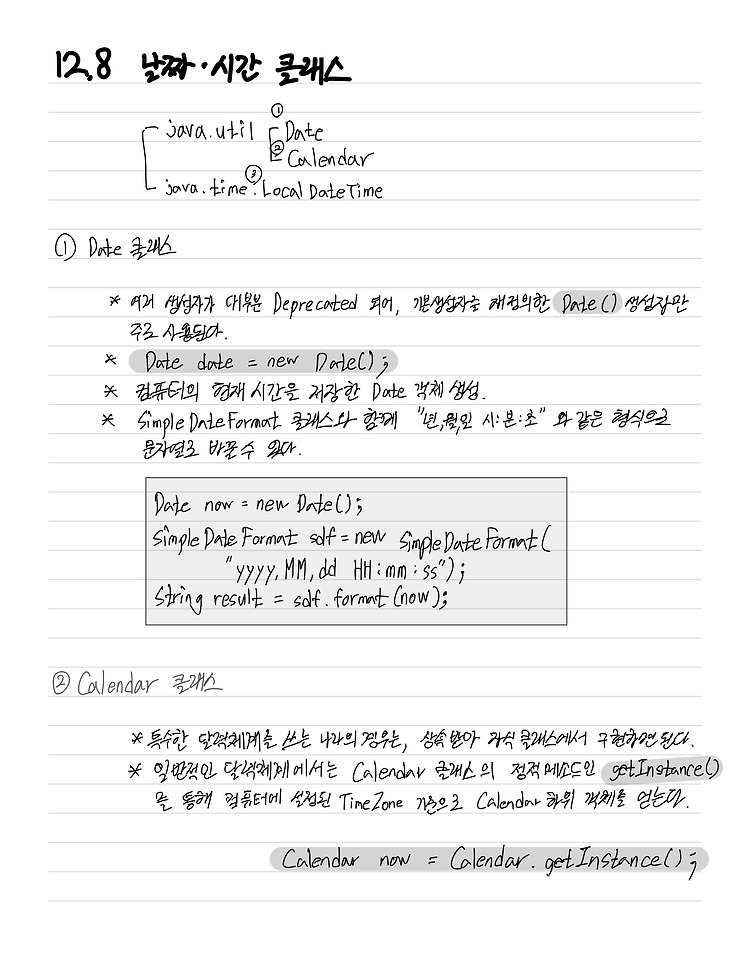 12.8 날짜·시간 클래스
java.util ① Date
② Calendar
java.time ③ : LocalDateTime
① Date 클래스
* 여러 생성자가 대부분 Deprecated 되어, 기본생성자를 재정의한 Date() 생성자만
주로 사용된다.
* Date date = new Date();
* 컴퓨터의 현재 시간을 저장한 Date 객체 생성.
* SimpleDateFormat 클래스와 함께 "년,월,일 시:분:초" 와 같은 형식으로
문자열로 바꿀 수 있다.
Date now = new Date();
SimpleDateFormat sdf = new SimpleDateFormat(
"yyyy,MM,dd HH:mm:ss");
String result = sdf.format(now);
② Calendar 클래스
* 특수한 달력체계를 쓰는 나라의 경우는, 상속받아 자식 클래스에서 구현하면 된다.
* 일반적인 달력체계에서는 Calendar 클래스의 정적메소드인 getInstance()
를 통해 컴퓨터에 설정된 TimeZone 기준으로 Calendar 하위 객체를 얻는다.
Calendar now = Calendar.getInstance();